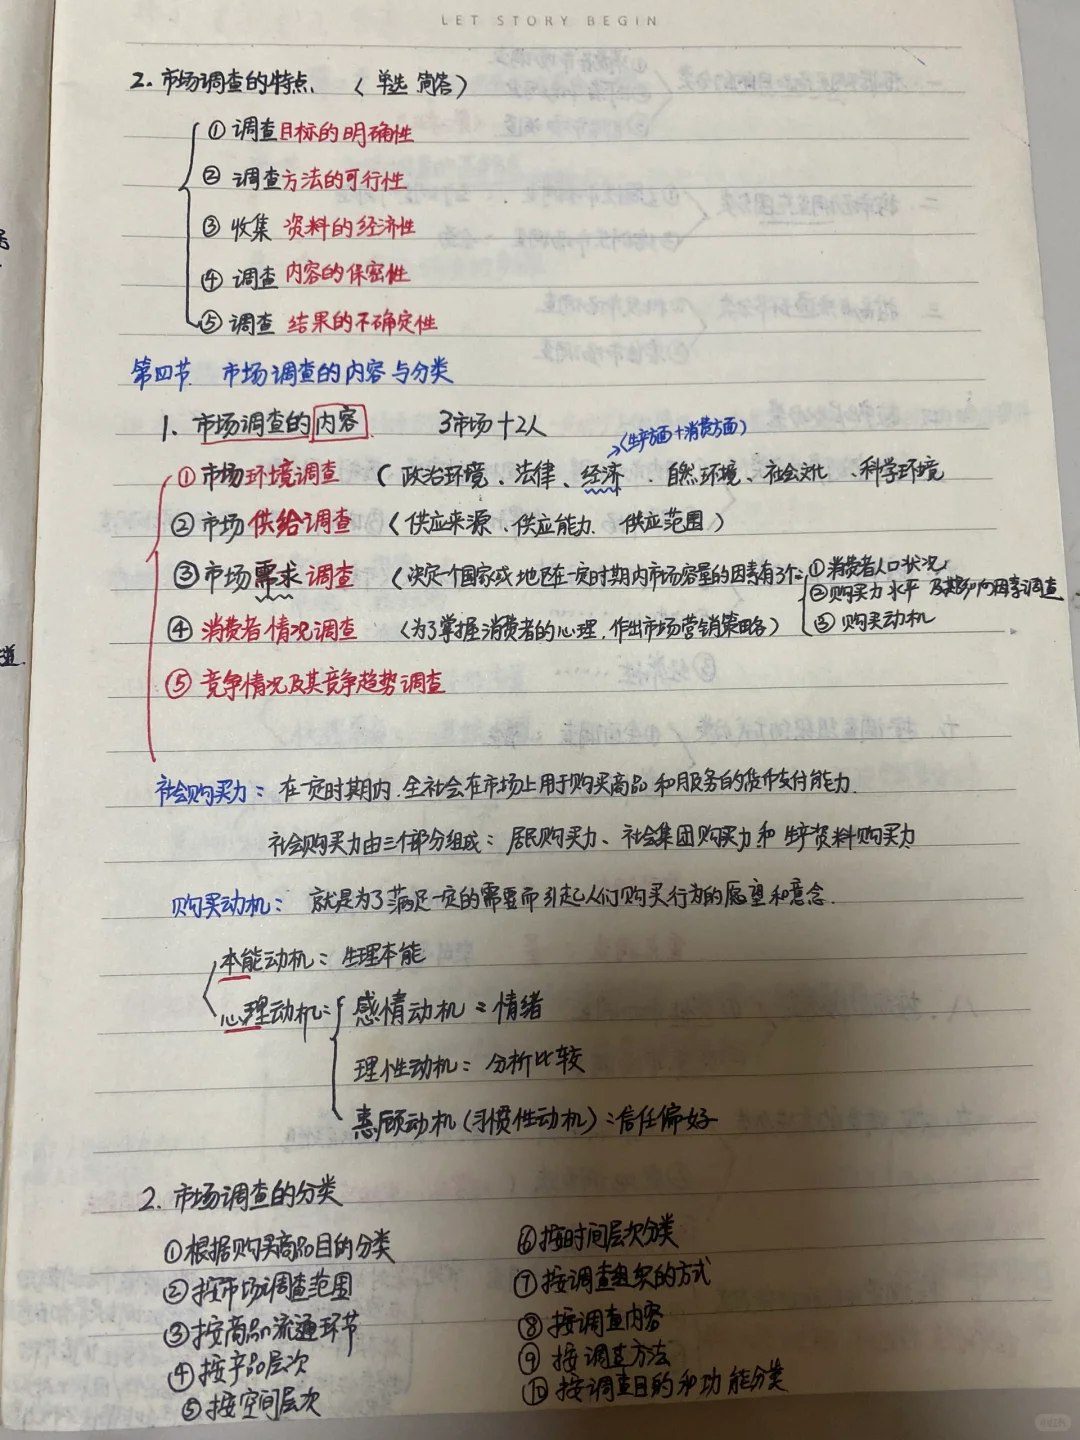 LET STORY BEGIN
2. 市场调查的特点 （单选 简答）
① 调查目标的明确性
② 调查方法的可行性
③ 收集 资料的经济性
④ 调查 内容的保密性
⑤ 调查 结果的不确定性
第四节 市场调查的内容与分类
1. 市场调查的内容 3市场+2人
（生产方面+消费方面）
① 市场环境调查 （政治环境、法律、经济、自然环境、社会文化、科学环境
② 市场供给调查 （供应来源、供应能力、供应范围）
③ 市场需求调查 （决定一个国家或地区在一定时期内市场容量的因素有3个：①消费者人口状况
②购买力水平及其影响因素调查
③购买动机
④ 消费者情况调查 （为了掌握消费者的心理，作出市场营销策略）
⑤ 竞争情况及其竞争趋势调查
道
社会购买力：在一定时期内，全社会在市场上用于购买商品和服务的货币支付能力.
社会购买力由三个部分组成：居民购买力、社会集团购买力和生产资料购买力
购买动机：就是为了满足一定的需要而引起人们购买行为的愿望和意念.
本能动机：生理本能
心理动机：感情动机：情绪
理性动机：分析比较
惠顾动机（习惯性动机）：信任偏好
2. 市场调查的分类
①根据购买商品目的分类
②按市场调查范围
③按商品流通环节
④按产品层次
⑤按空间层次
⑥按时间层次分类
⑦按调查组织的方式
⑧按调查内容
⑨按调查方法
⑩按调查目的和功能分类